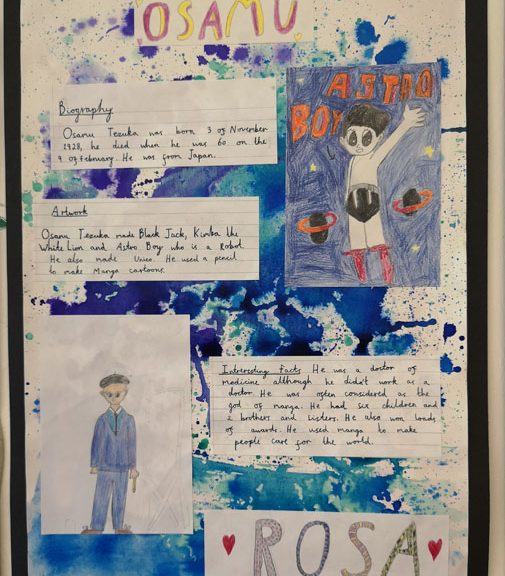 OSAMU
Biography
Osamu Tezuka was born 3 of November
1928, he died when he was 60 on the
9 of February. He was from Japan.
ASTRO
BOY
Artwork
Osamu Tezuka made Black Jack, Kimba the
White Lion and Astro Boy who is a Robot.
He also made Unico. He used a pencil
to make Manga cartoons.
Interesting Facts He was a doctor of
medicine although he didn't work as a
doctor. He was often considered as the
god of manga. He had six children and
2 brothers and sisters. He also won loads
of awards. He used manga to make
people care for the world.
ROSA